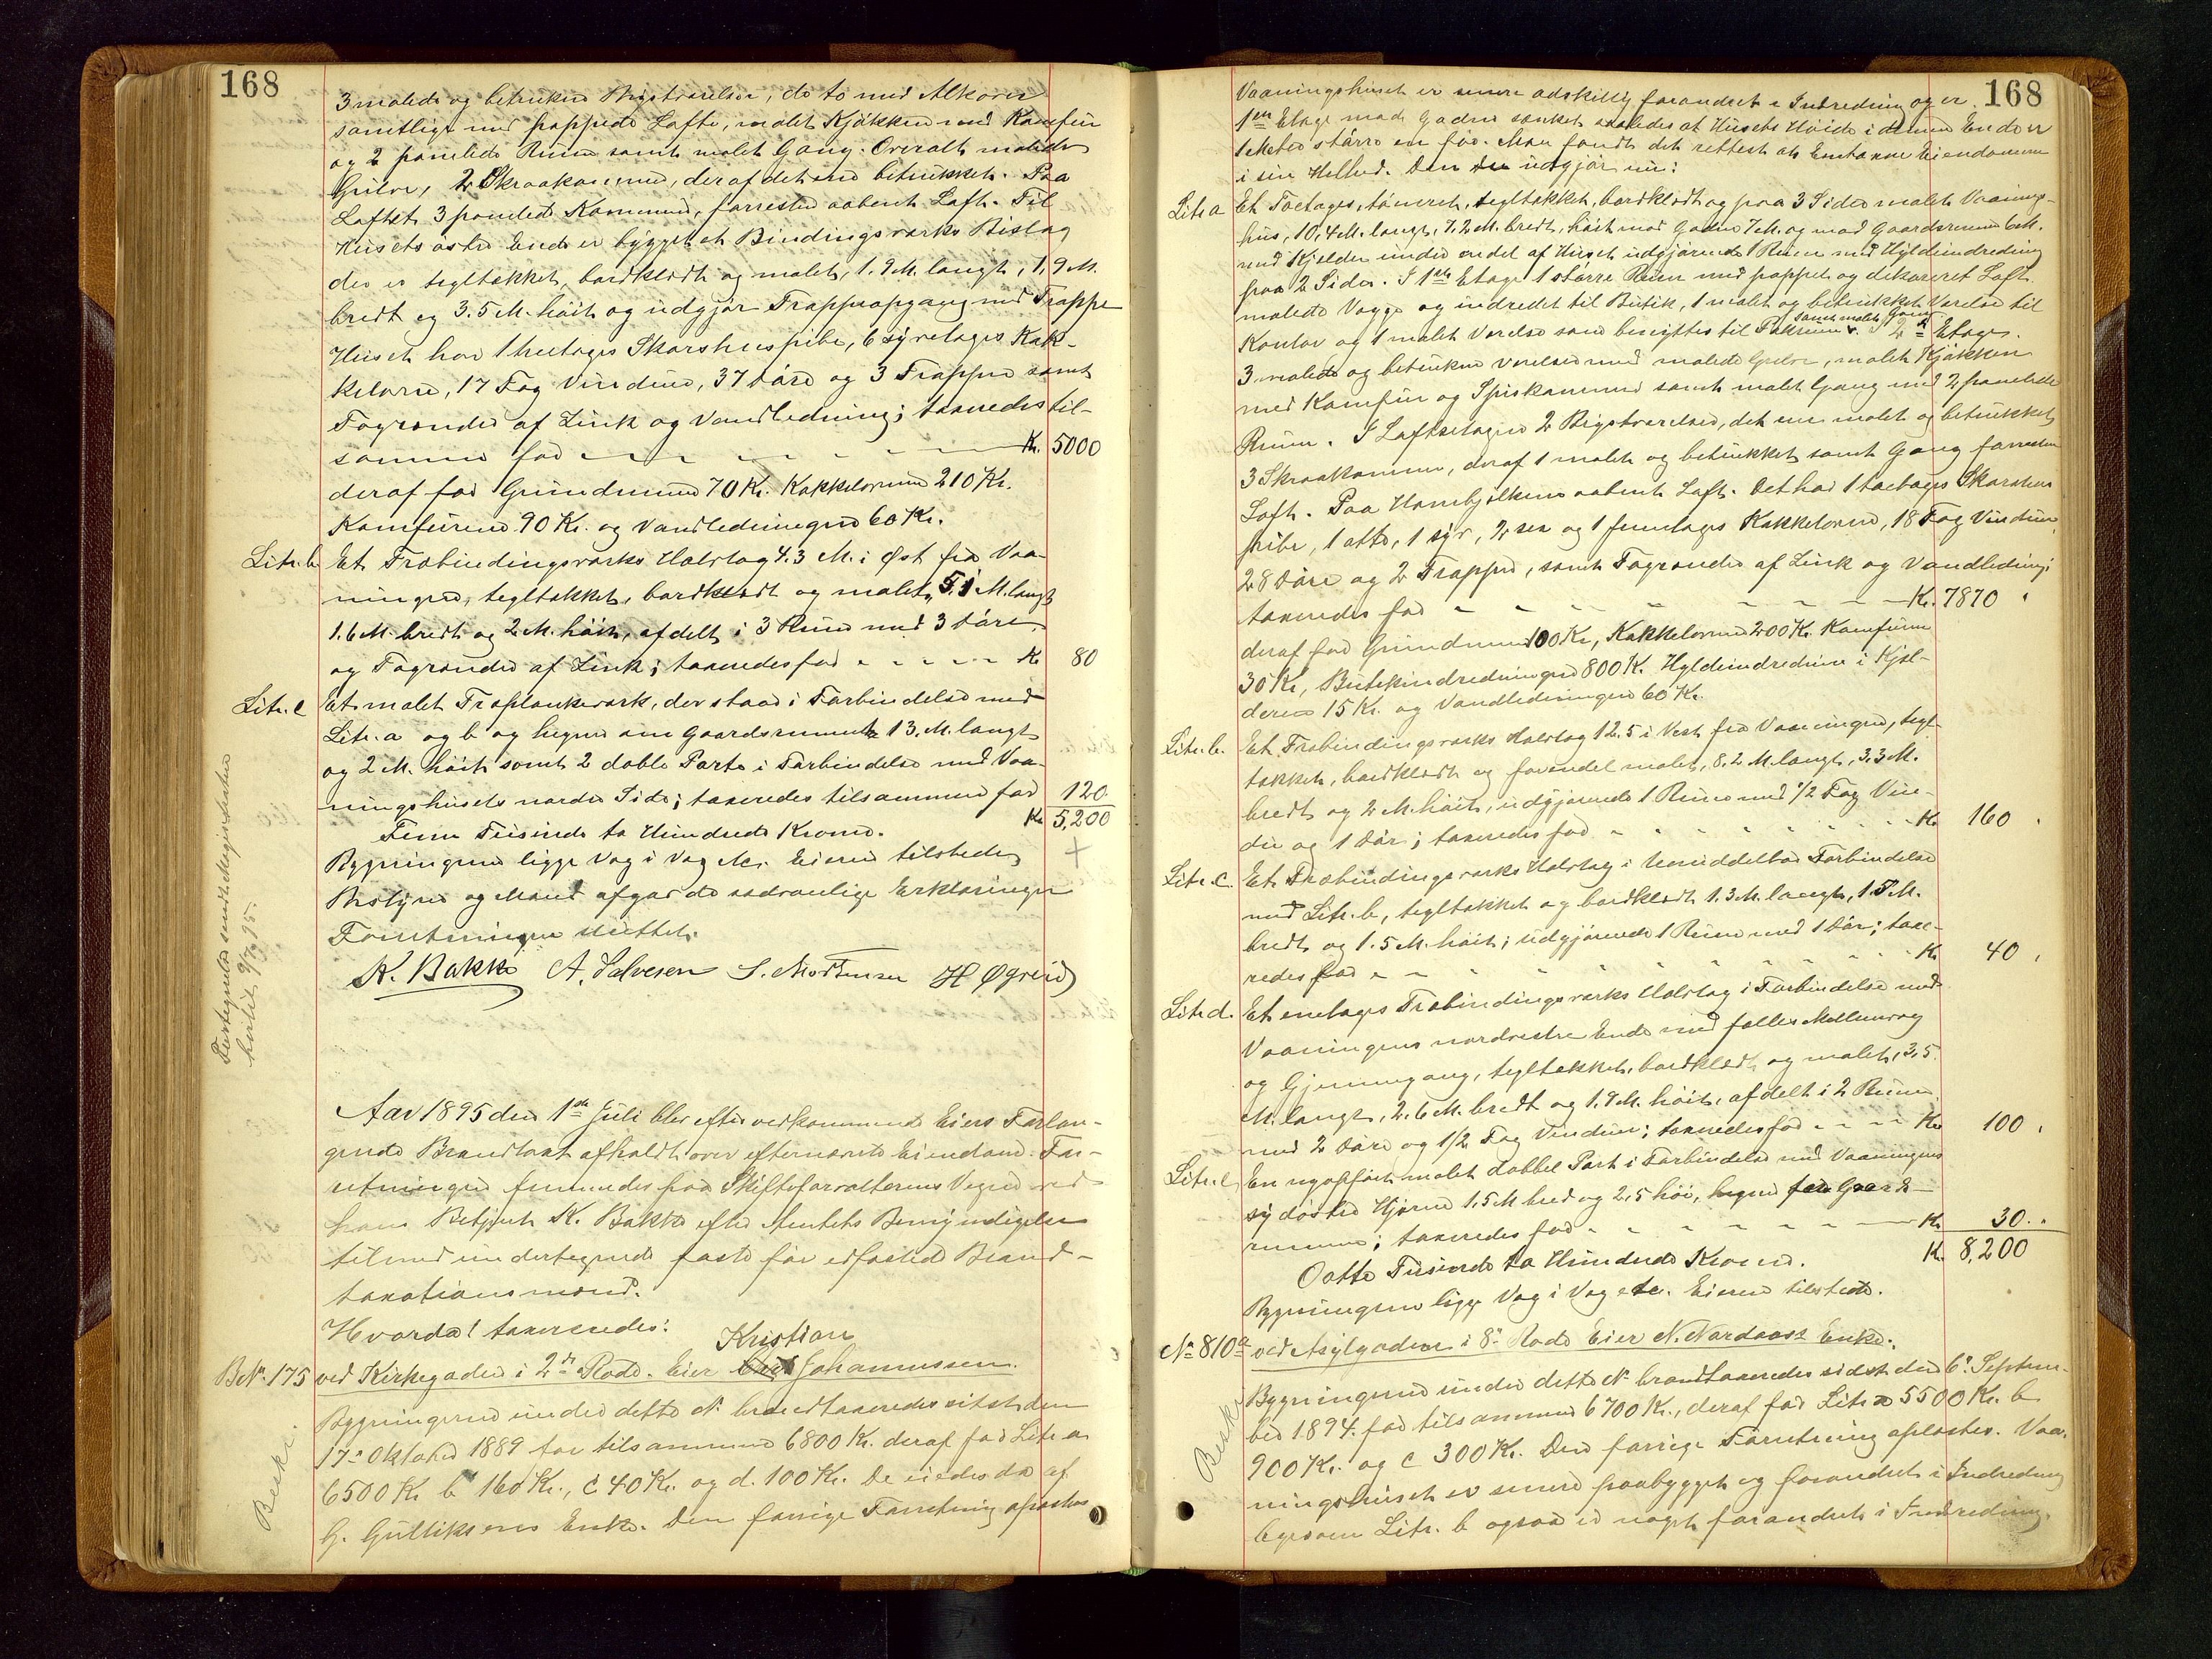 168
3 malede og betrukne Beqvemmeligheder, de to med Alkover
samtlige med pappede Lofte, malet Kjökken med Komfür
og 2 panelede Rum samt malet Gang. Overalt malede
Gulve, 2 Skraakammere, deraf det ene betrukket. Paa
Loftet 3 panelede Kammere, forresten aabent Loft. Til
Husets östre Ende er bygget et Bindingsværks Bislag
der er tegltækket, bordklædt og malet, 1.9 M. langt, 1,9 M.
bredt og 3.5 M. höit og udgjör Trappeopgang med Trappe
Huset har 1 toetages Skorstenspibe, 6 syvetages Kak-
kelovne, 17 Fag Vinduer, 37 Döre og 3 Trapper samt
Tagrender af Zink og Vandledning; taxeredes til-
sammen for Kr. 5000
deraf for Grundmuren 70 Kr. Kakkelovnene 210 Kr.
Komfürene 90 Kr. og Vandledningen 60 Kr.
Litr. b Et Træbindingsværks Halvtag 4.3 M. i Öst fra Vaa-
ningen, tegltækket, bordklædt og malet, 5.1 M. langt
1.6 M. bredt og 2 M. höit, afdelt i 3 Rum med 3 Döre
og Tagrender af Zink; taxeredes for Kr 80
Litr. c Et malet Træplankeværk, der staar i Forbindelse med
Litr. a og b og hegner om Gaardsrummet 13. M. langt
og 2 M. höit samt 2 doble Porte i Forbindelse med Vaa-
ningshusets nordre Side; taxeredes tilsammen for 120.
Fem Tusinde to Hundrede Kroner. Kr 5,200
Bygningerne ligge Væg i Væg etc. Eieren tilstede
Bestyrer og Mænd afgav de sædvanlige Erklæringer
Forretningen sluttet.
K. Bakke A. Salvesen S. Mortensen H Øgreid
Gjenpart sendt Magistraten
hertil 9/7 95.
Aar 1895 den 1ste Juli blev efter vedkommende Eiers Forlan-
gende Brandtaxt afholdt over efternævnte Eiendomme. For-
retningen fremmedes paa Skifteforvalterens Vegne ved
hans Betjent K. Bakke efter Amtets Bemyndigelse
tilmed undertegnede faste før edfæstede Brand-
taxationsmænd.
Hvorda! taxeredes:
Kristian
B.No. 175 ved Kirkegaden i 2den Rode. Eier Johannessen.
Bygningerne under dette No. brandtaxeredes sidst den
17de Oktober 1889 for tilsammen 6800 Kr. deraf for Litr a
6500 Kr b 160 Kr., c 40 Kr. og d. 100 Kr. De eiedes da af
G. Gulliksens Enke. Den forrige Forretning oplæstes
Beskr.
168
Vaaningshuset er senere adskillig forandret i Indredning og er
1ste Etage mod Gaden sænket saaledes at Husets Höide i denne Ende er
1 Meter större en för. Man fandt det rettest at Omtaxere Eiendommen
i sin Helhed. Den udgjör nu:
Litr a Et Toetages, tömret, tegltækket, bordklædt og paa 3 Sider malet Vaanings-
hus, 10,4 M. langt, 7.2 M. bredt, höit mod Gaden 7 M. og mod Gaardsrummet 6 M.
med 1 Kjelder under endel af Huset udgjörende 1 Rum med Hyldeindredning
paa 2 Sider. I 1ste Etage 1 större Rum med pappet og dekoreret Loft
malede Vægge og indredet til Butik, 1 malet og betrukket Værelse til
Kontor og 1 malet Værelse som benyttes til Pakrum samt malet Gang. I 2den Etage.
3 malede og betrukne Værelser med malede Gulve, malet Kjökken
med Komfür og Spiskammer samt malet Gang med 2 panelede
Rum. I Loftsetagen 2 Beqvemmeligheder, det ene malet og betrukket
3 Skraakammere, deraf 1 malet og betrukket samt Gang forresten
Loft. Paa Hanebjelkerne aabent Loft. Det har 1 toetages Skorstens-
pibe, 1 otte, 1 syv, 2 sex og 1 femetages Kakkelovne, 18 Fag Vinduer
28 Döre og 2 Trapper, samt Tagrender af Zink og Vandledning;
taxeredes for Kr. 7870
deraf for Grundmuren 100 Kr, Kakkelovnene 200 Kr. Komfüren
30 Kr, Butikindredningen 800 Kr. Hyldeindredningen i Kjel-
deren 15 Kr. og Vandledningen 60 Kr.
Litr. b. Et Træbindingsværks Halvtag 12.5 i Vest fra Vaaningen, tegl-
tækket, bordklædt og forendel malet, 8,2 M. langt, 3,3 M.
bredt og 2 M. höit, udgjörende 1 Rum med 1/2 Fag Vin-
due og 1 Dör; taxeredes for Kr. 160
Litr. c. Et Træbindingsværks Halvtag i Umiddelbar Forbindelse
med Litr. b, tegltækket og bordklædt 1.3 M. langt, 1.5 M.
bredt og 1.5 M. höit; udgjörende 1 Rum med 1 Dör; taxe-
redes for Kr. 40
Litr d. Et enetages Træbindingsværks Halvtag i Forbindelse med
Vaaningens nordvestre Ende med fælles Mellemvæg
og Gjennemgang, tegltækket, bordklædt og malet, 3,5
M. langt, 2.6 M. bredt og 1.9 M. höit, afdelt i 2 Rum
med 2 Döre og 1/2 Fag Vinduer; taxeredes for Kr. 100
Litr. e En nyopfört malet dobbel Port i Forbindelse med Vaaningens
sydöstre Hjörne 1,5 M bred og 2,5 höi, hegner for Gaards-
rummet; taxeredes for Kr. 30..
Otte Tusinde to Hundrede Kroner. Kr. 8,200
Bygningerne ligge Væg i Væg etc. Eieren tilstede.
No 810a ved Asylgaden i 8de Rode Eier N. Nordaas's Enke.
Bygningerne under dette No brandtaxeredes sidst den 6te Septem-
ber 1894 for tilsammen 6700 Kr., deraf for Litr a 5500 Kr. b
900 Kr. og c 300 Kr. Den forrige Forretning oplæstes. Vaa-
ningshuset er senere paabygget og forandret i Indredning
ligesom Litr. b ogsaa er noget forandret i Indredning.
Beskr.